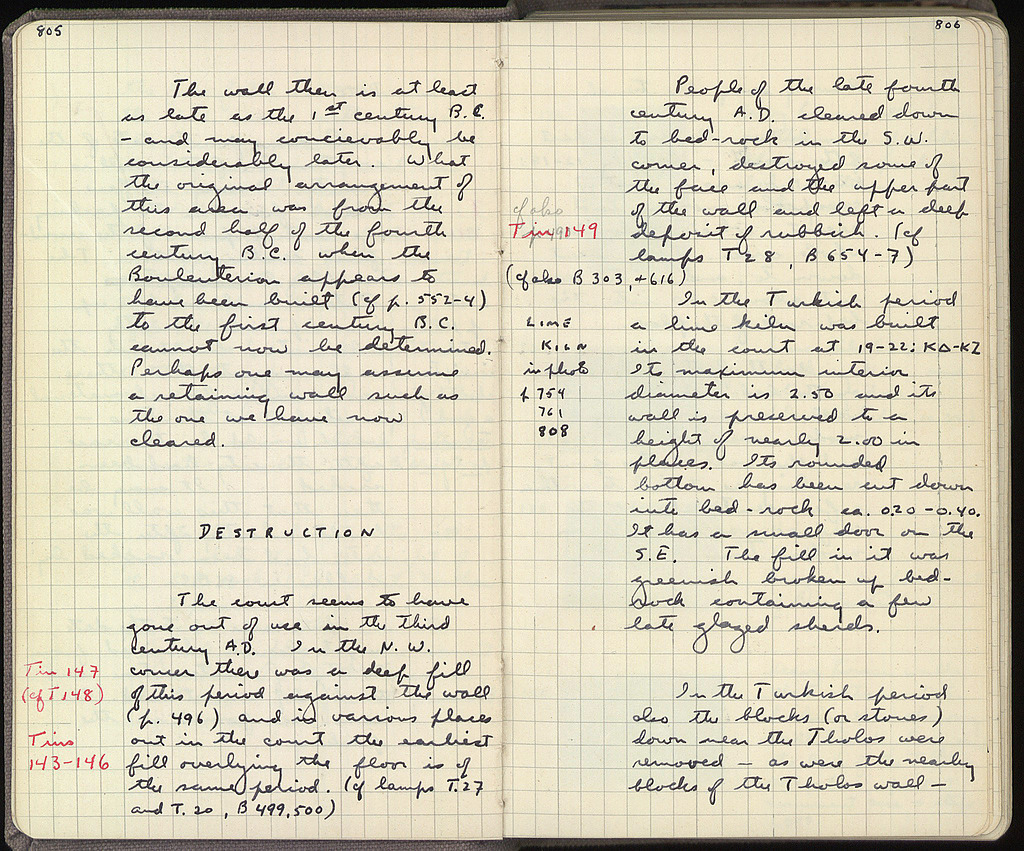 805
The wall then is at least
as late as the 1st century B.C.
- and may concievably be
considerably later. What
the original arrangement of
this area was from the
second half of the fourth
century B.C. when the
Bouleuterion appears to
have been built (cf p. 552-4)
to the first century B.C.
cannot now be determined.
Perhaps one may assume
a retaining wall such as
the one we have now
cleared.
DESTRUCTION
The court seems to have
gone out of use in the third
century A.D. In the N.W.
Tin 147
corner there was a deep fill
(cf T 148)
of this period against the wall
(p. 496) and in various places
Tins
out in the court the earliest
143-146
fill overlying the floor is of
the same period. (cf lamps T.27
and T.20, B 499,500)
806
People of the late fourth
century A.D. cleared down
to bed-rock in the S.W.
corner, destroyed some of
the face and the upper part
cf also
of the wall and left a deep
Tin 149
deposit of rubbish. (cf
lamps T 28, B 654-7)
(cf also B 303, +616)
In the Turkish period
LIME
a lime kiln was built
KILN
in the court at 19-22: ΚΔ-ΚΖ
in photo
Its maximum interior
f 754
diameter is 2.50 and its
761
wall is preserved to a
808
height of nearly 2.00 in
places. Its rounded
bottom has been cut down
into bed-rock ca. 0.20-0.40.
It has a small door on the
S.E. The fill in it was
greenish broken up bed-
rock containing a few
late glazed sherds.
In the Turkish period
also the blocks (or stones)
down near the Tholos were
removed - as were the nearby
blocks of the Tholos wall -